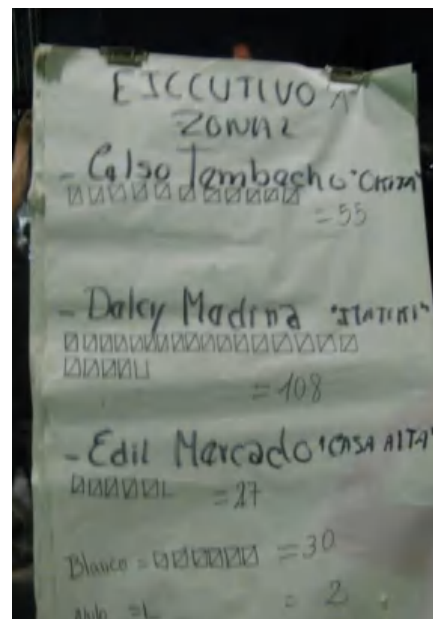 EJECUTIVO
ZONAL
- Celso Tambacho "CHIZA"
= 55
- Daley Madina "ITATIKI"
= 108
- Edil Mercado "CASA ALTA"
= 27
Blanco = = 30
Nulo = = 2